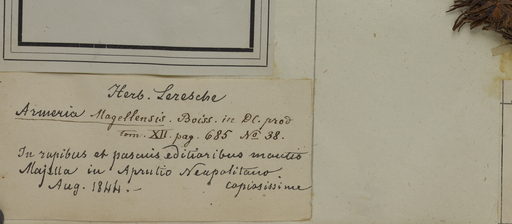 Herb. Leresche
Armeria Magellensis. Boiss. in DC. prod
tom. XII. pag. 685 No. 38.
In rupibus et pascuis editioribus montis
Majella in Aprutio Neapolitano
Aug. 1844. - copiosissime